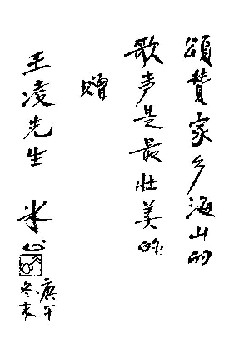 頌賛家乡海山的
歌声是最壮美的
赠
王凌先生
米
庚午
冬末